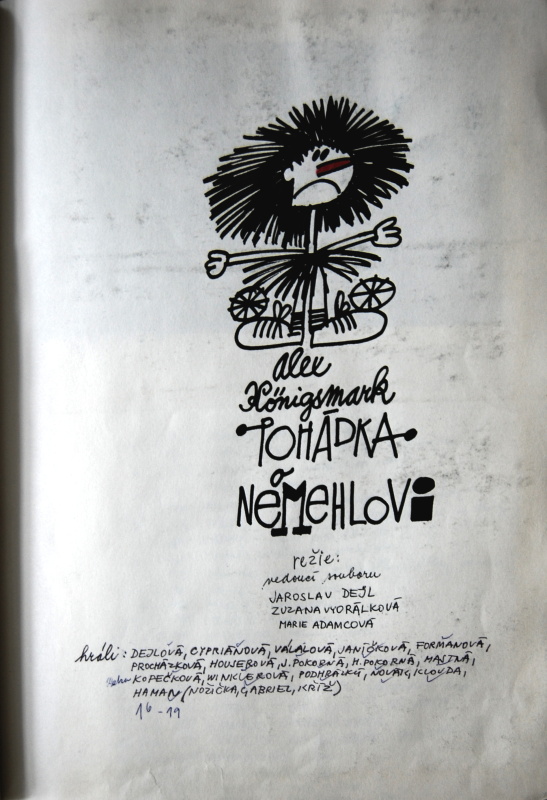 Alex
Königsmark
POHÁDKA
o
NEMEHLOVI
režie:
vedoucí souboru
JAROSLAV DEJL
ZUZANA VYORÁLKOVÁ
MARIE ADAMCOVÁ
hráli: DEJLOVÁ, CYPRIÁNOVÁ, VÁLALOVÁ, JANÍČKOVÁ, FORMANOVÁ,
PROCHÁZKOVÁ, HOUSEROVÁ, J. POKORNÁ, H. POKORNÁ, MALTNÁ,
KOPEČKOVÁ, WINKLEROVÁ, PODHRÁZKÝ, NOVÁK, KLOUDA,
HAMAN (NOŽIČKA, GABRIEL, KŘÍŽ)
16-19